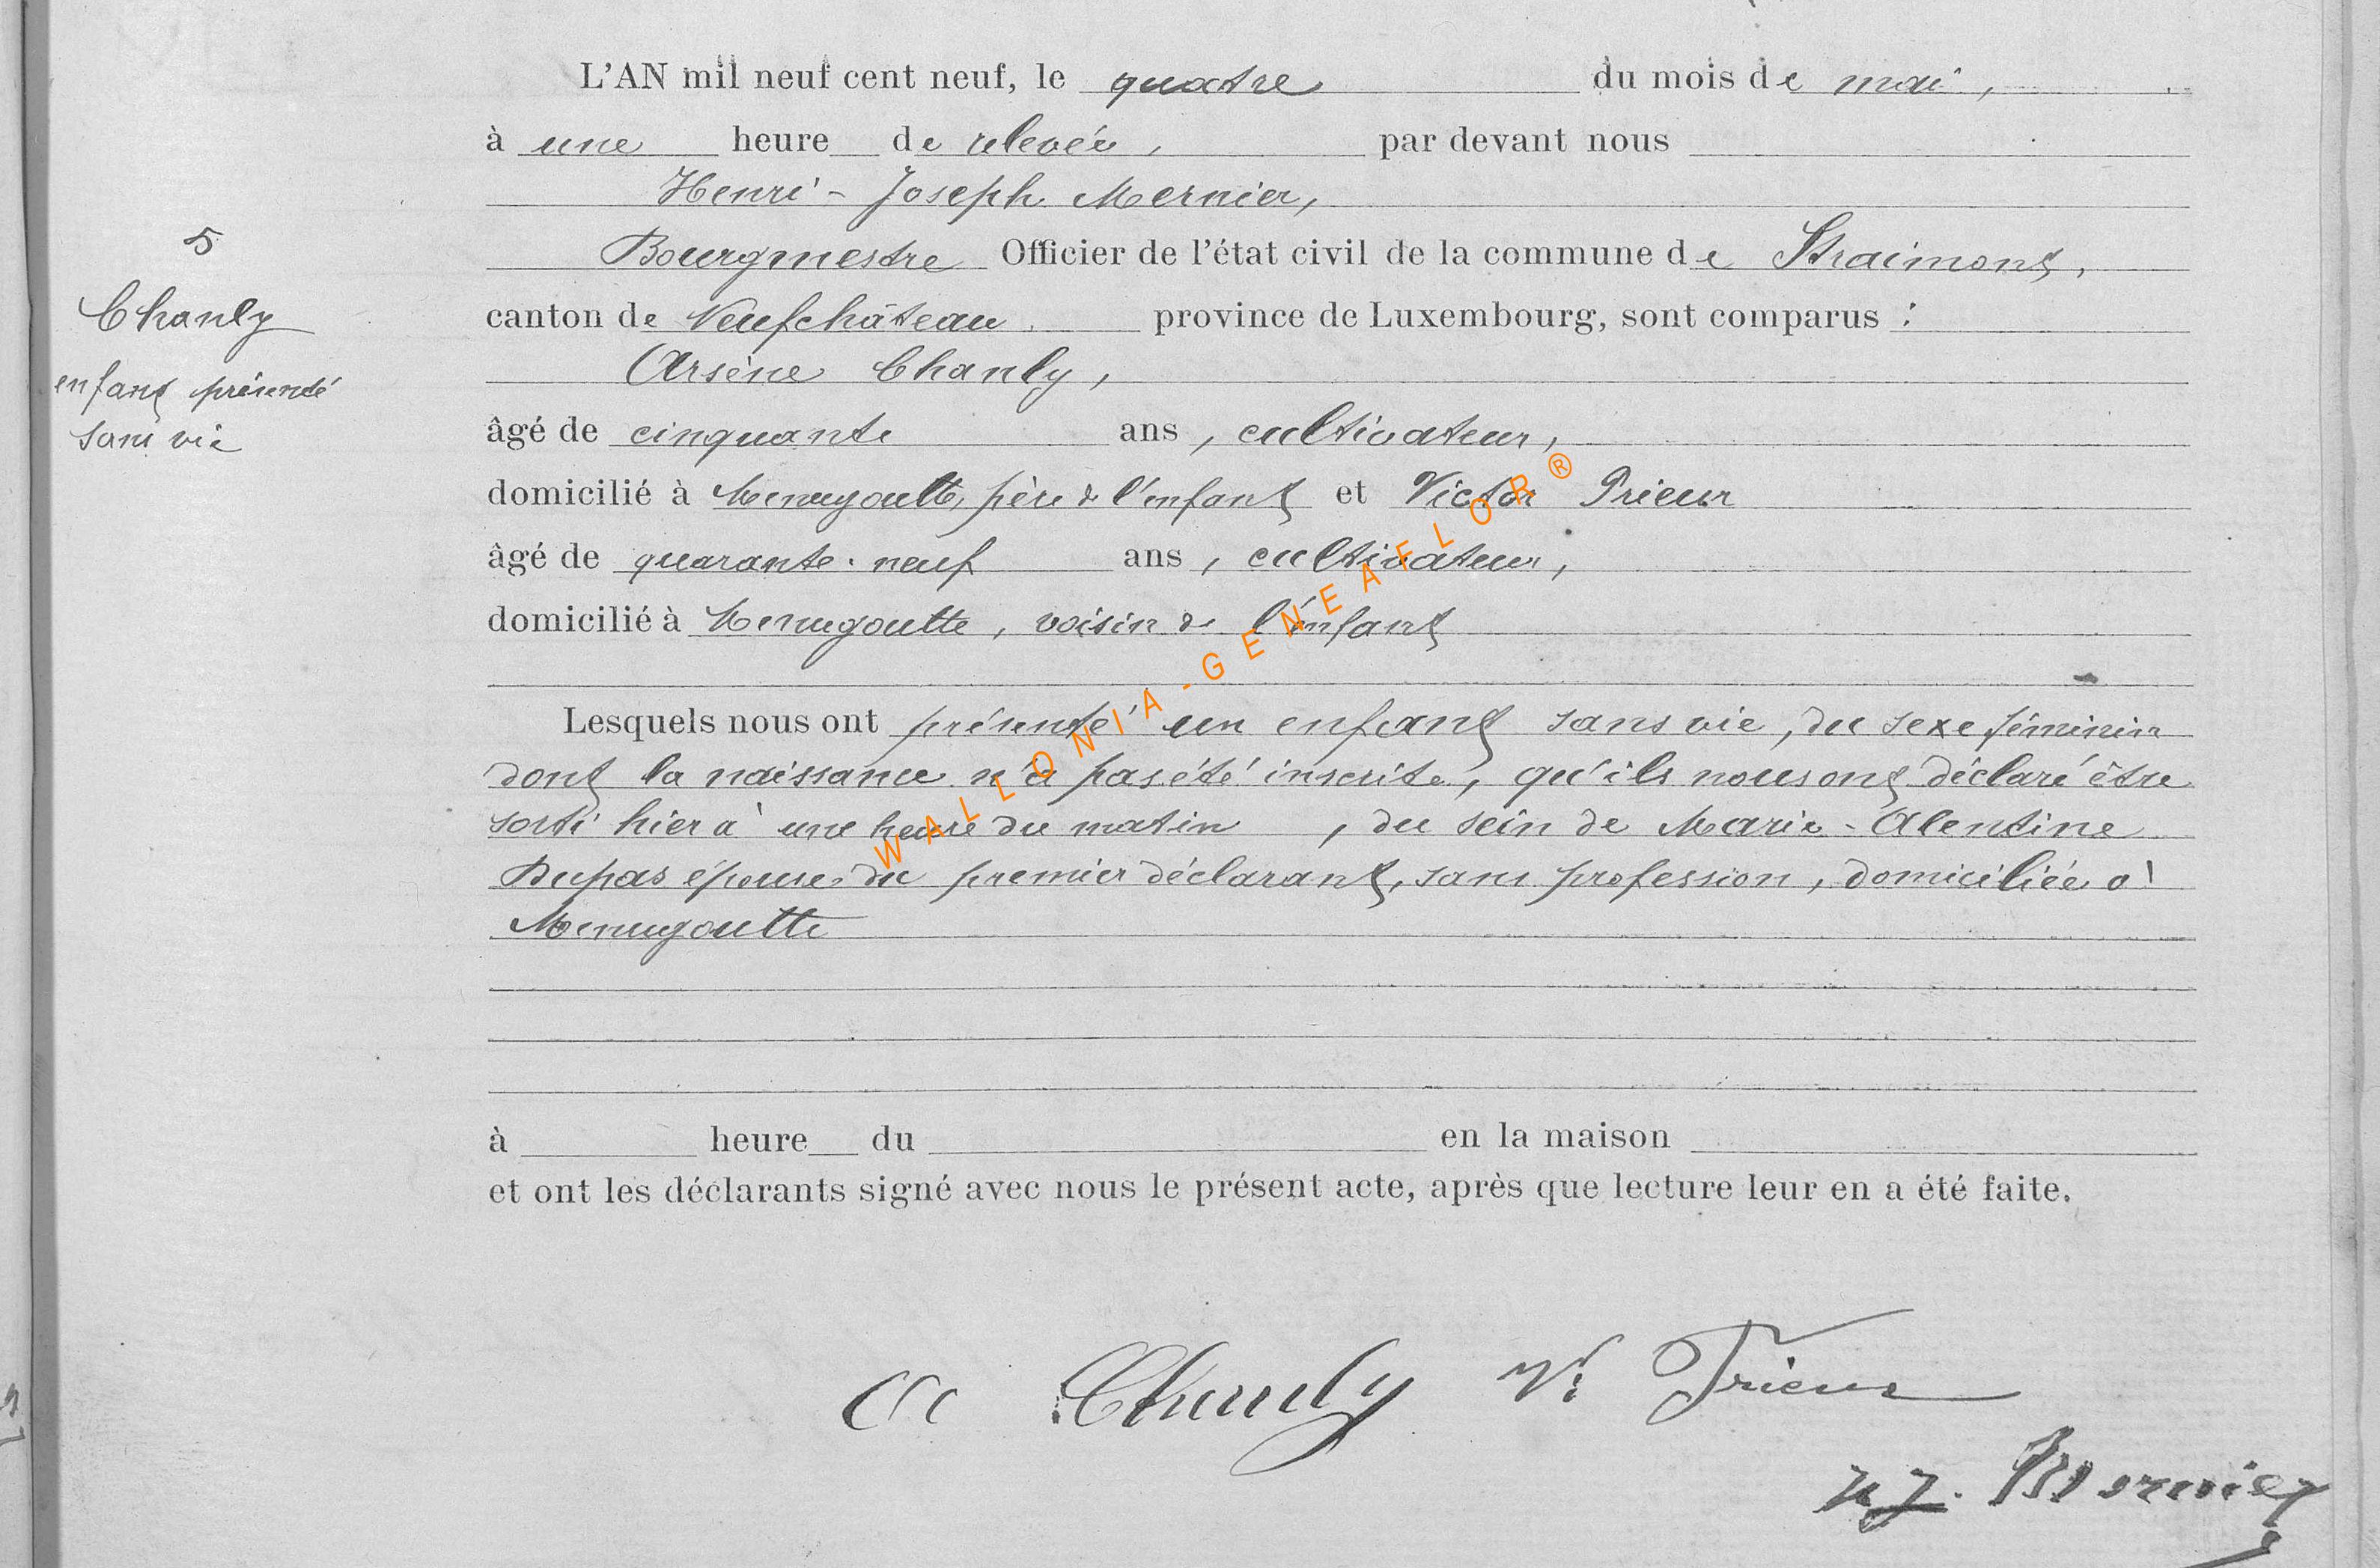 L'AN mil neuf cent neuf, le quatre du mois de mai,
à une heure de relevée, par devant nous
Henri-Joseph Mernier,
5
Bourgmestre Officier de l'état civil de la commune de Straimont,
Chanly
canton de Neufchâteau, province de Luxembourg, sont comparus :
Arsène Chanly,
enfant présenté
sans vie
âgé de cinquante ans, cultivateur,
domicilié à Menugoutte, père de l'enfant et Victor Prieur
âgé de quarante-neuf ans, cultivateur,
domicilié à Menugoutte, voisin de l'enfant
Lesquels nous ont présenté un enfant sans vie, du sexe féminin
dont la naissance n'a pas été inscrite, qu'ils nous ont déclaré être
sorti hier à une heure du matin, du sein de Marie-Alentine
Dupas épouse du premier déclarant, sans profession, domiciliée à
Menugoutte
WALLONIA-GENEAFLOR®
à heure du en la maison
et ont les déclarants signé avec nous le présent acte, après que lecture leur en a été faite.
A Chanly Vr Prieur
H J. Mernier